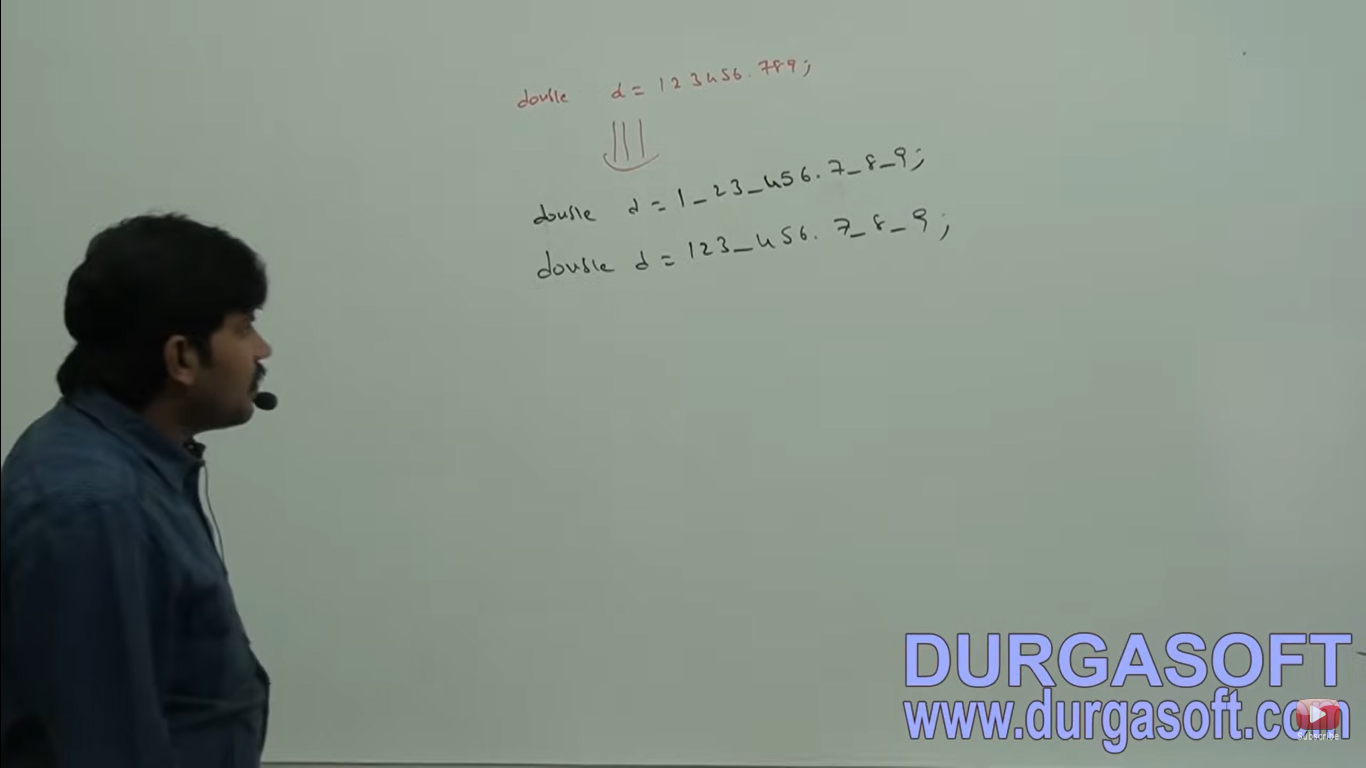 double d = 123456.789;
double d = 1_23_456.7_8_9;
double d = 123_456.7_8_9;
DURGASOFT
www.durgasoft.com
Subscribe